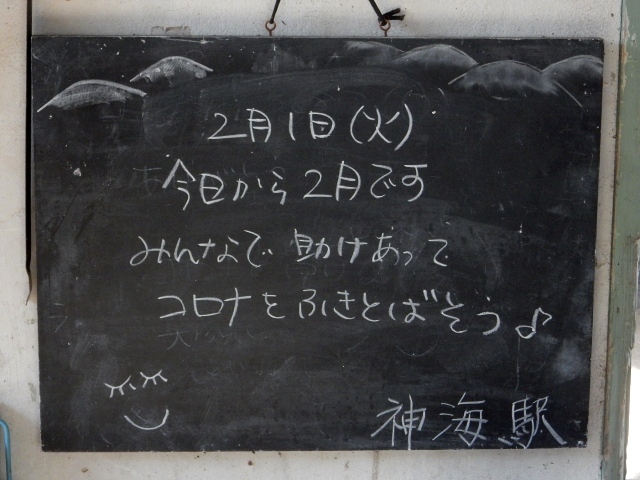 2月1日(火)
今日から2月です
みんなで助けあって
コロナをふきとばそう♪
神海駅